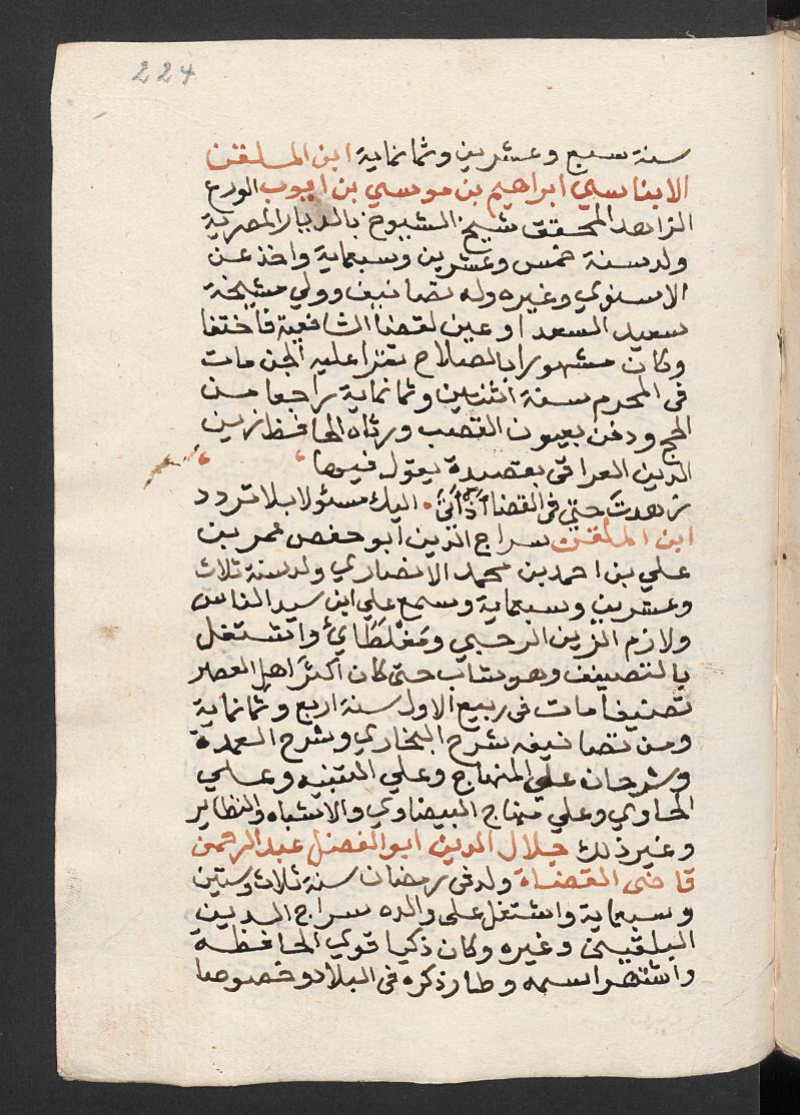 224
سنة سبع وعشرين وثمانماية ابن الملقن
الابناسي ابراهيم بن موسي بن ايوب الورع
الزاهد المحقق شيخ الشيوخ بالديار المصرية
ولد سنة خمس وعشرين وسبعماية واخذ عن
الاسنوي وغيره وله تصانيف وولي مشيخة
سعيد السعدا وعين لقضا الشافعية فاختفا
وكان مشهورا بالصلاح تقرا عليه الجن مات
في المحرم سنة اثنتين وثمانماية راجعا من
الحج ودفن بعيون القصب ورثاه الحافظ زين
الدين العراقي بقصيدة يقول فيها
زهدت حتي في القضا اذ اتى اليك مسئولا بلا تردد
ابن الملقن سراج الدين ابو حفص عمر بن
علي بن احمد بن محمد الانصاري ولد سنة ثلاث
وعشرين وسبعماية وسمع علي ابن سيد الناس
ولازم الزين الرحبي ومغلطاي واشتغل
بالتصنيف وهو شاب حتي كان اكثر اهل العصر
تصنيفا مات في ربيع الاول سنة اربع وثمانماية
ومن تصانيفه شرح البخاري وشرح العمدة
وشرحان علي المنهاج وعلي التنبيه وعلي
الحاوي وعلي منهاج البيضاوي والاشباه والنظاير
وغير ذلك جلال الدين ابو الفضل عبد الرحمن
قاضى القضاة ولد في رمضان سنة ثلاث وستين
وسبعماية واشتغل على والده سراج الدين
البلقيني وغيره وكان ذكيا قوي الحافظة
واشتهر اسمه وطار ذكره في البلاد وخصوصا